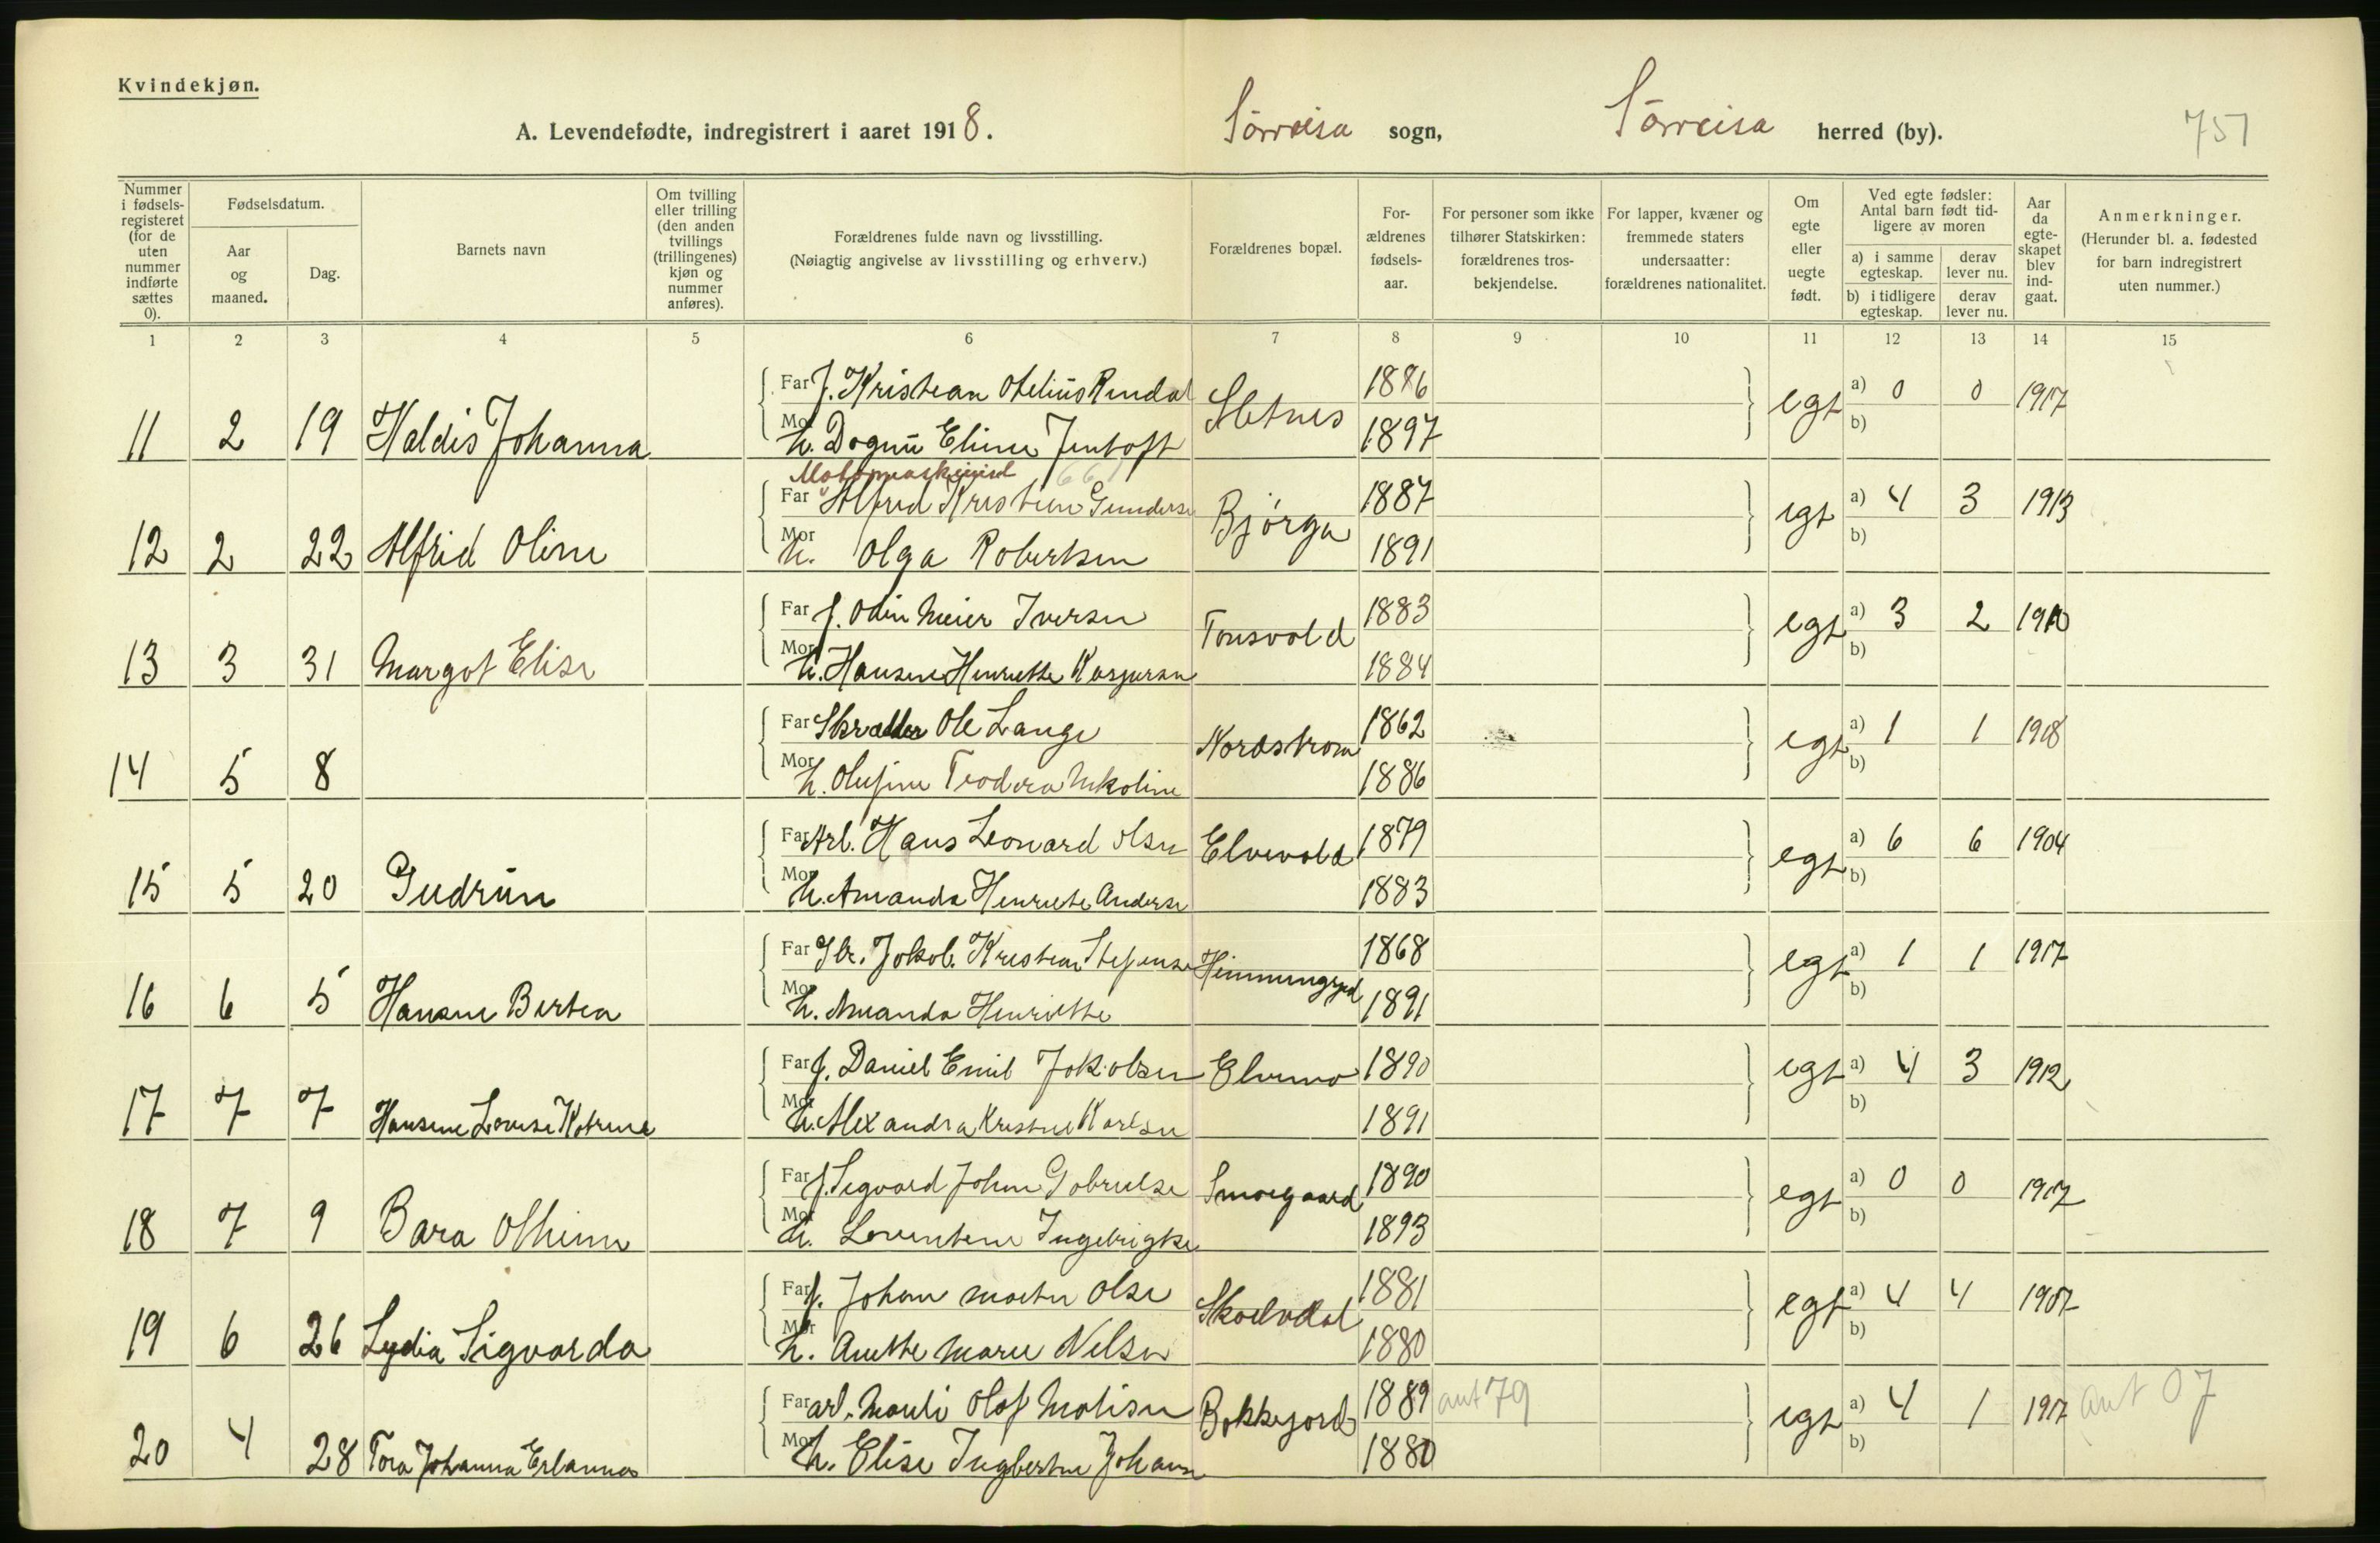 Kvindekjøn.
A. Levendefødte, indregistrert i aaret 1918. Sørreisa sogn, Sørreisa herred (by). 751
Nummer i fødsels-registeret (for de uten nummer indførte sættes 0).
Fødselsdatum.
Aar og maaned.
Dag.
Barnets navn
Om tvilling eller trilling (den anden tvillings (trillingenes) kjøn og nummer anføres).
Forældrenes fulde navn og livsstilling.
(Nøiagtig angivelse av livsstilling og erhverv.)
Forældrenes bopæl.
For-ældrenes fødsels-aar.
For personer som ikke tilhører Statskirken: forældrenes tros-bekjendelse.
For lapper, kvæner og fremmede staters undersaatter: forældrenes nationalitet.
Om egte eller uegte født.
Ved egte fødsler: Antal barn født tid-ligere av moren
a) i samme egteskap.
derav lever nu.
b) i tidligere egteskap.
derav lever nu.
Aar da egte-skapet blev ind-gaat.
Anmerkninger.
(Herunder bl. a. fødested for barn indregistrert uten nummer.)
1 2 3 4 5 6 7 8 9 10 11 12 13 14 15
Far f. Kristian Otelius Rendal 1886
11 2 19 Haldis Johanna Sletnes egt a) 0 0 1917
Mor h. Dagny Eline Jentoft 1897 b)
Motormaskinist 661
Far Alfred Kristian Gunderse 1887
12 2 22 Alfrid Oline Bjørga egt a) 4 3 1913
Mor h. Olga Robertsen 1891 b)
Far f. Odin Meier Iversen 1883
13 3 31 Margot Elise Tonsvold egt a) 3 2 1910
Mor h. Hansine Henriette Kaspersen 1884 b)
Far Skrædder Ole Lange 1862
14 5 8 Nordstrom egt a) 1 1 1918
Mor h. Olufine Teodora Nikoline 1886 b)
Far Arb. Hans Leonard Olsen 1879
15 5 20 Gudrun Elvevold egt a) 6 6 1904
Mor h. Amanda Henriete Anderse 1883 b)
Far Gbr. Jakob Kristian Stefense 1868
16 6 5 Hansine Bertea egt a) 1 1 1917
Mor h. Amanda Henriette 1891 b)
Far f. Daniel Emil Jakobsen Elvemo 1890
17 7 7 Hansine Lovise Katrine egt a) 4 3 1912
Mor h. Alexandra Kristine Karlsen 1891 b)
Far f. Sigvard Johan Gabrielse 1890
18 7 9 Bara Othine Smorgaard egt a) 0 0 1917
Mor h. Lorentine Ingebrigtse 1893 b)
Far f. Johan Martin Olse 1881
19 6 26 Lydia Sigvarda Skoelvdal egt a) 4 4 1907
Mor h. Anette Marie Nilsen 1880 b)
Far arb. Mauli Olaf Matisen 1889 ant 79
20 4 28 Tora Johanna Erlanna Bakkejord egt a) 4 1 1917 ant 07
Mor h. Elise Ingbertine Johanse 1880 b)